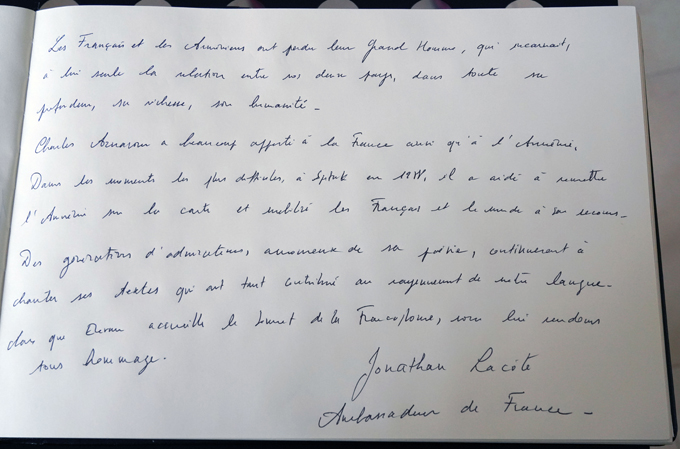 Les Français et les Arméniens ont perdu leur Grand Homme, qui incarnait,
à lui seul la relation entre nos deux pays, dans toute sa
profondeur, sa richesse, son humanité -
Charles Aznavour a beaucoup apporté à la France ainsi qu'à l'Arménie.
Dans les moments les plus difficiles, à Spitak en 1988, il a aidé à remettre
l'Arménie sur la carte et mobilisé les Français et le monde à son secours -
Des générations d'admirateurs, amoureux de sa poésie, continueront à
chanter ses textes qui ont tant contribué au rayonnement de notre langue -
alors que Erevan accueille le Sommet de la Francophonie, nous lui rendons
tous hommage.
Jonathan Lacôte
Ambassadeur de France -